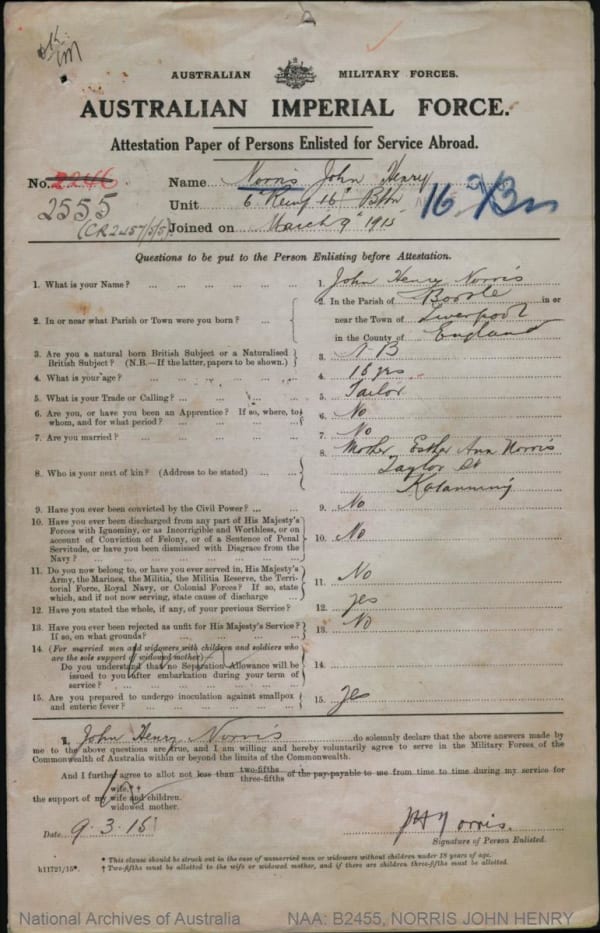 AUSTRALIAN MILITARY FORCES.
AUSTRALIAN IMPERIAL FORCE.
Attestation Paper of Persons Enlisted for Service Abroad.
No. 2246
2555
Name Norris John Henry
Unit 6 Reinf 16th Battn
16
Joined on March 9th 1915
Questions to be put to the Person Enlisting before Attestation.
1. What is your Name? ... ... ... ...
1. John Henry Norris
2. In or near what Parish or Town were you born? ...
2. In the Parish of Bootle in or
near the Town of Liverpool
in the County of England
3. Are you a natural born British Subject or a Naturalised
British Subject? (N.B.—If the latter, papers to be shown.)
3. N B
4. What is your age? ... ... ... ...
4. 18 yrs
5. What is your Trade or Calling? ... ... ... ...
5. Tailor
6. Are you, or have you been an Apprentice? If so, where, to
whom, and for what period? ... ... ... ...
6. No
7. Are you married? ... ... ... ...
7. No
8. Who is your next of kin? (Address to be stated) ...
8. Mother Esther Ann Norris
Taylor St
Katanning
9. Have you ever been convicted by the Civil Power? ... ...
9. No
10. Have you ever been discharged from any part of His Majesty's
Forces with Ignominy, or as Incorrigible and Worthless, or on
account of Conviction of Felony, or of a Sentence of Penal
Servitude, or have you been dismissed with Disgrace from the
Navy? ... ... ... ...
10. No
11. Do you now belong to, or have you ever served in, His Majesty's
Army, the Marines, the Militia, the Militia Reserve, the Terri-
torial Force, Royal Navy, or Colonial Forces? If so, state
which, and if not now serving, state cause of discharge ...
11. No
12. Have you stated the whole, if any, of your previous Service?
12. yes
13. Have you ever been rejected as unfit for His Majesty's Service?
If so, on what grounds? ... ... ... ...
13. No
14. (For married men and widowers with children and soldiers who
are the sole support of widowed mother)—
Do you understand that no Separation Allowance will be
issued to you after embarkation during your term of
service? ... ... ... ...
14.
15. Are you prepared to undergo inoculation against smallpox
and enteric fever? ... ... ... ...
15. yes
I, John Henry Norris do solemnly declare that the above answers made by
me to the above questions are true, and I am willing and hereby voluntarily agree to serve in the Military Forces of the
Commonwealth of Australia within or beyond the limits of the Commonwealth.
And I further agree to allot not less than two-fifths three-fifths of the pay payable to me from time to time during my service for
wife,*†
the support of my wife and children.
widowed mother.
Date 9.3.15
JH Norris.
Signature of Person Enlisted.
* This clause should be struck out in the case of unmarried men or widowers without children under 18 years of age.
† Two-fifths must be allotted to the wife or widowed mother, and if there are children three-fifths must be allotted.
National Archives of Australia
NAA: B2455, NORRIS JOHN HENRY